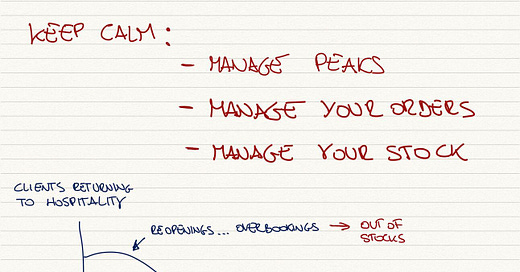 KEEP CALM:
- MANAGE PEAKS
- MANAGE YOUR ORDERS
- MANAGE YOUR STOCK
CLIENTS RETURNING
TO HOSPITALITY
REOPENINGS... OVERBOOKINGS → OUT OF
STOCKS